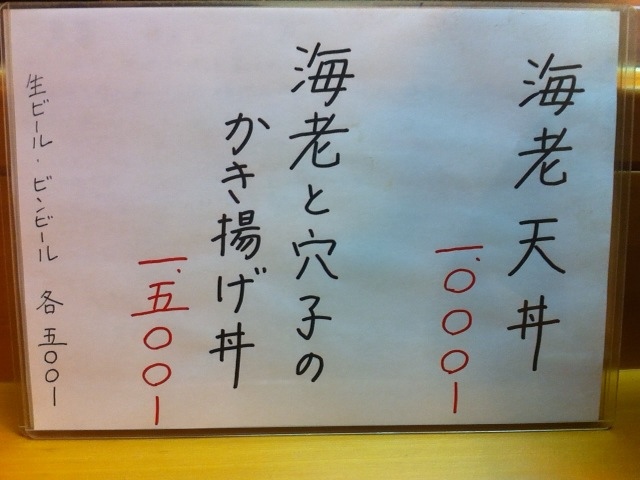 海老天丼
一、〇〇〇ー
海老と穴子の
かき揚げ丼
一、五〇〇ー
生ビール・ビンビール 各五〇〇ー